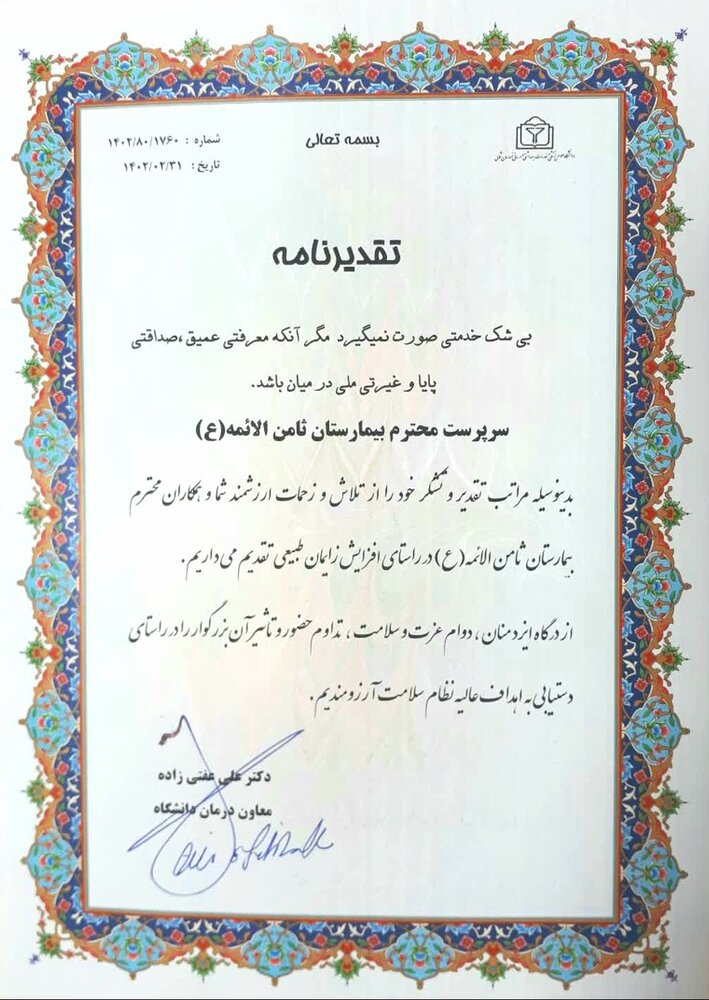 بسمه تعالی
شماره : ۱۴۰۲/۸۰/۱۷۶۰
تاریخ : ۱۴۰۲/۰۲/۳۱
تقدیرنامه
بی شک خدمتی صورت نمیگیرد مگر آنکه معرفتی عمیق ،صداقتی
پایا و غیرتی ملی در میان باشد.
سرپرست محترم بیمارستان ثامن الائمه(ع)
بدینوسیله مراتب تقدیر و تشکر خود را از تلاش و زحمات ارزشمند شما و همکاران محترم
بیمارستان ثامن الائمه(ع) در راستای افزایش زایمان طبیعی تقدیم می داریم.
از درگاه ایزد منان ، دوام عزت و سلامت ، تداوم حضور و تاثیر آن بزرگوار را در راستای
دستیابی به اهداف عالیه نظام سلامت آرزومندیم.
دکتر علی عفتی زاده
معاون درمان دانشگاه